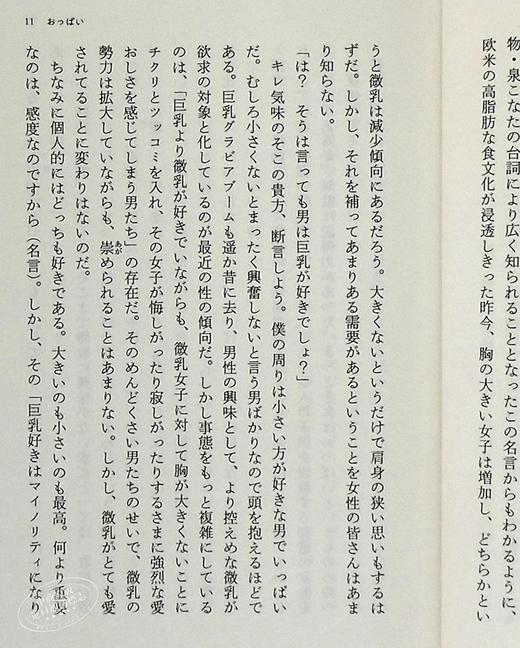 物・泉こなたの台詞により広く知られることとなったこの名言からもわかるように、
欧米の高脂肪な食文化が浸透しきった昨今、胸の大きい女子は増加し、どちらかとい
11 おっぱい
うと微乳は減少傾向にあるだろう。大きくないというだけで肩身の狭い思いもするは
ずだ。しかし、それを補ってあまりある需要があるということを女性の皆さんはあま
り知らない。
「は？　そうは言っても男は巨乳が好きでしょ？」
キレ気味のそこの貴方、断言しよう。僕の周りは小さい方が好きな男でいっぱい
だ。むしろ小さくないとまったく興奮しないと言う男ばかりなので頭を抱えるほどで
ある。巨乳グラビアブームも遥か昔に去り、男性の興味として、より控えめな微乳が
欲求の対象と化しているのが最近の性の傾向だ。しかし事態をもっと複雑にしている
のは、「巨乳より微乳が好きでいながらも、微乳女子に対して胸が大きくないことに
チクリとツッコミを入れ、その女子が悔しがったり寂しがったりするさまに強烈な愛
おしさを感じてしまう男たち」の存在だ。そのめんどくさい男たちのせいで、微乳の
勢力は拡大していながらも、崇められることはあまりない。しかし、微乳がとても愛
されてることに変わりはないのだ。
ちなみに個人的にはどっちも好きである。大きいのも小さいのも最高。何より重要
なのは、感度なのですから（名言）。しかし、その「巨乳好きはマイノリティになり